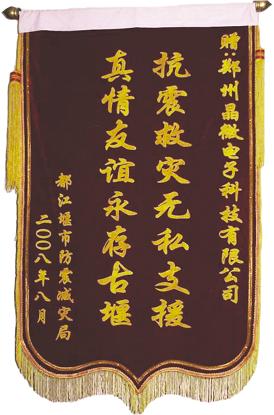 赠:郑州晶微电子科技有限公司
抗震救灾无私支援
真情友谊永存古堰
都江堰市防震减灾局
二〇〇八年八月